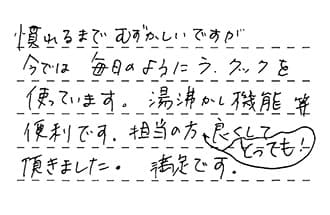 慣れるまでむずかしいですが
今では 毎日のようにラ.クックを
使っています。湯沸かし機能 等
便利です。担当の方 良くして
とっても!
頂きました。 満足です。